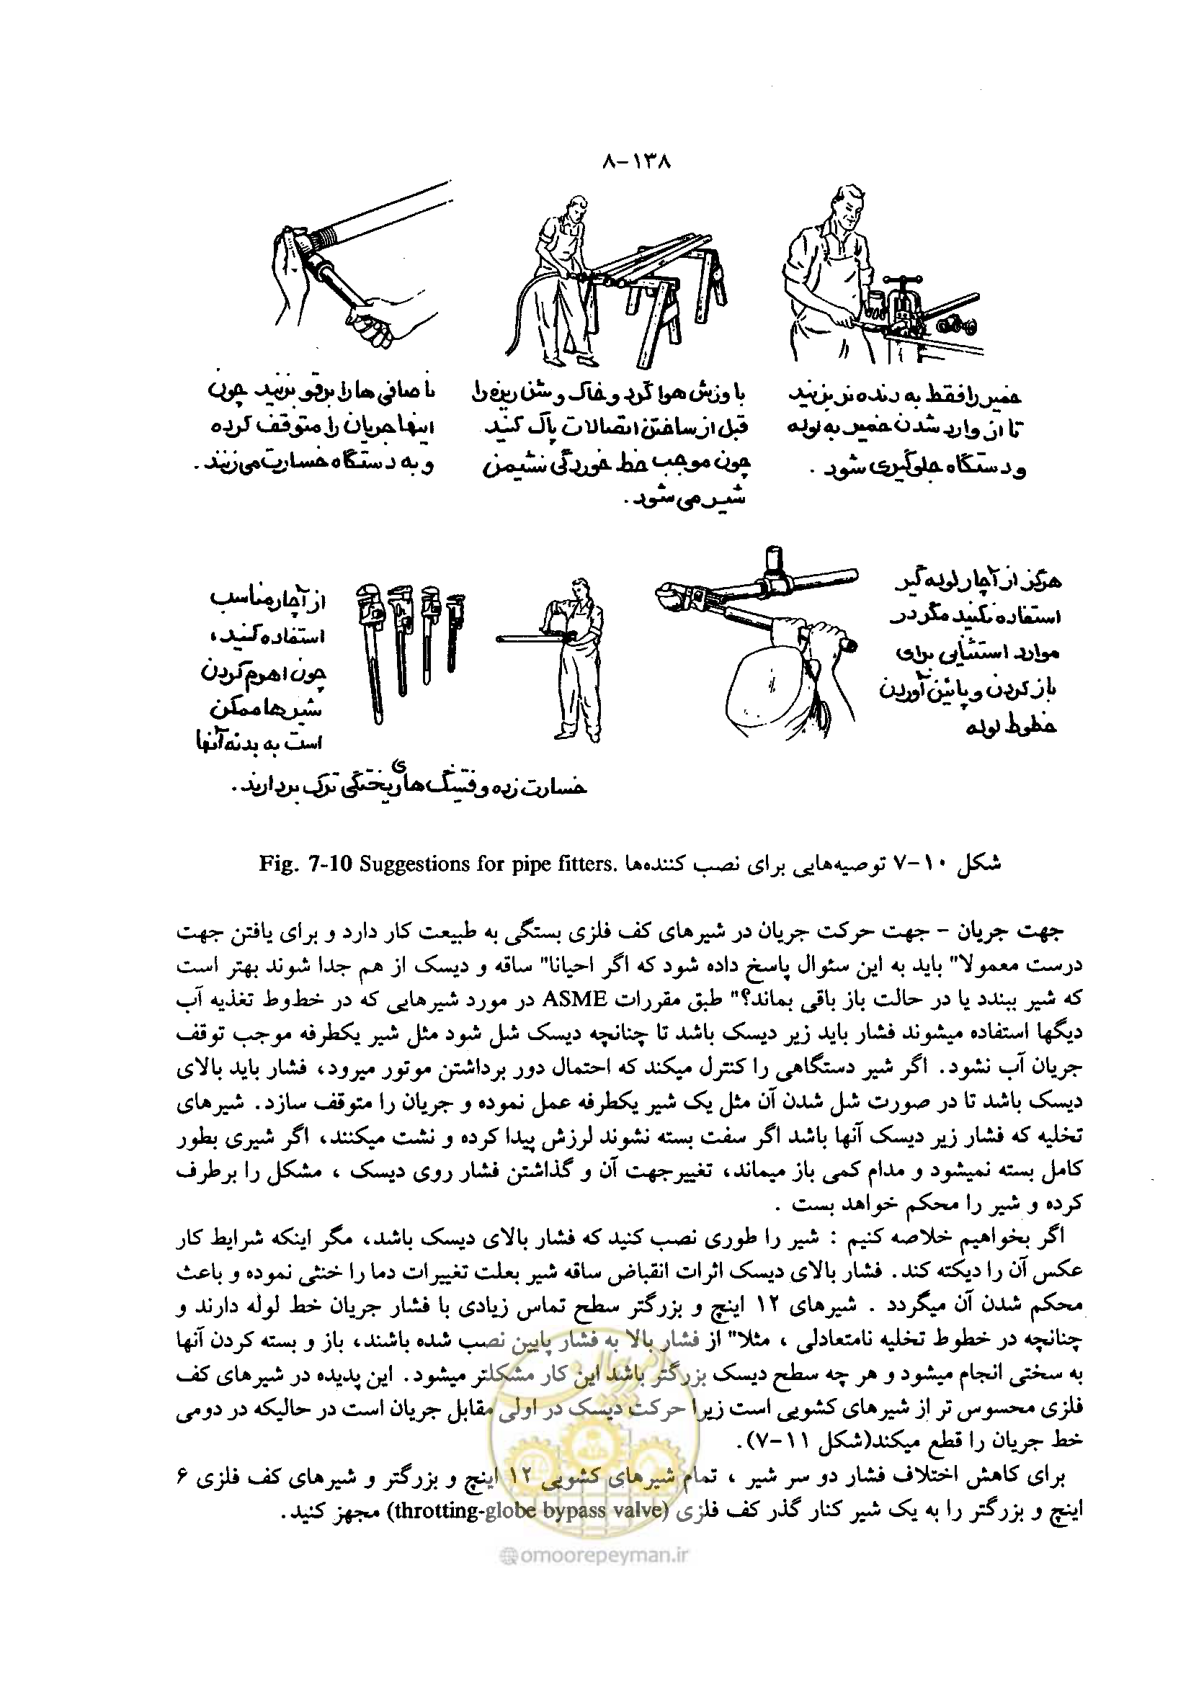 ۸-۱۳۸
خمیر را فقط به دنده نر بزنید
تا از وارد شدن خمیر به لوله
و دستگاه جلوگیری شود .
با وزش هوا گرد و خاک و شن ریزه را
قبل از ساختن اتصالات پاک کنید
چون موجب خط خوردگی نشیمن
شیر می شود .
تا صافی ها را برقو بزنید چون
اینها جریان را متوقف کرده
و به دستگاه خسارت می زنند .
هرگز از آچار لوله گیر
استفاده نکنید مگر در
موارد استثنایی برای
باز کردن و پایین آوردن
خطوط لوله
از آچار مناسب
استفاده کنید ،
چون اهرم کردن
شیرها ممکن
است به بدنه آنها
خسارت زده و فتینگ های ریختگی ترک بردارند .
شکل ۱۰-۷ توصیه‌هایی برای نصب کننده‌ها Fig. 7-10 Suggestions for pipe fitters.
جهت جریان - جهت حرکت جریان در شیرهای کف فلزی بستگی به طبیعت کار دارد و برای یافتن جهت
درست معمولا" باید به این سئوال پاسخ داده شود که اگر احیانا" ساقه و دیسک از هم جدا شوند بهتر است
که شیر ببندد یا در حالت باز باقی بماند؟" طبق مقررات ASME در مورد شیرهایی که در خطوط تغذیه آب
دیگها استفاده میشوند فشار باید زیر دیسک باشد تا چنانچه دیسک شل شود مثل شیر یکطرفه موجب توقف
جریان آب نشود. اگر شیر دستگاهی را کنترل میکند که احتمال دور برداشتن موتور میرود، فشار باید بالای
دیسک باشد تا در صورت شل شدن آن مثل یک شیر یکطرفه عمل نموده و جریان را متوقف سازد. شیرهای
تخلیه که فشار زیر دیسک آنها باشد اگر سفت بسته نشوند لرزش پیدا کرده و نشت میکنند، اگر شیری بطور
کامل بسته نمیشود و مدام کمی باز میماند، تغییرجهت آن و گذاشتن فشار روی دیسک ، مشکل را برطرف
کرده و شیر را محکم خواهد بست .
اگر بخواهیم خلاصه کنیم : شیر را طوری نصب کنید که فشار بالای دیسک باشد، مگر اینکه شرایط کار
عکس آن را دیکته کند. فشار بالای دیسک اثرات انقباض ساقه شیر بعلت تغییرات دما را خنثی نموده و باعث
محکم شدن آن میگردد . شیرهای ۱۲ اینچ و بزرگتر سطح تماس زیادی با فشار جریان خط لوله دارند و
چنانچه در خطوط تخلیه نامتعادلی ، مثلا" از فشار بالا به فشار پایین نصب شده باشند، باز و بسته کردن آنها
به سختی انجام میشود و هر چه سطح دیسک بزرگتر باشد این کار مشکلتر میشود. این پدیده در شیرهای کف
فلزی محسوس تر از شیرهای کشویی است زیرا حرکت دیسک در اولی مقابل جریان است در حالیکه در دومی
خط جریان را قطع میکند(شکل ۱۱-۷).
برای کاهش اختلاف فشار دو سر شیر ، تمام شیرهای کشویی ۱۲ اینچ و بزرگتر و شیرهای کف فلزی ۶
اینچ و بزرگتر را به یک شیر کنار گذر کف فلزی (throtting-globe bypass valve) مجهز کنید.
@omoorepeyman.ir